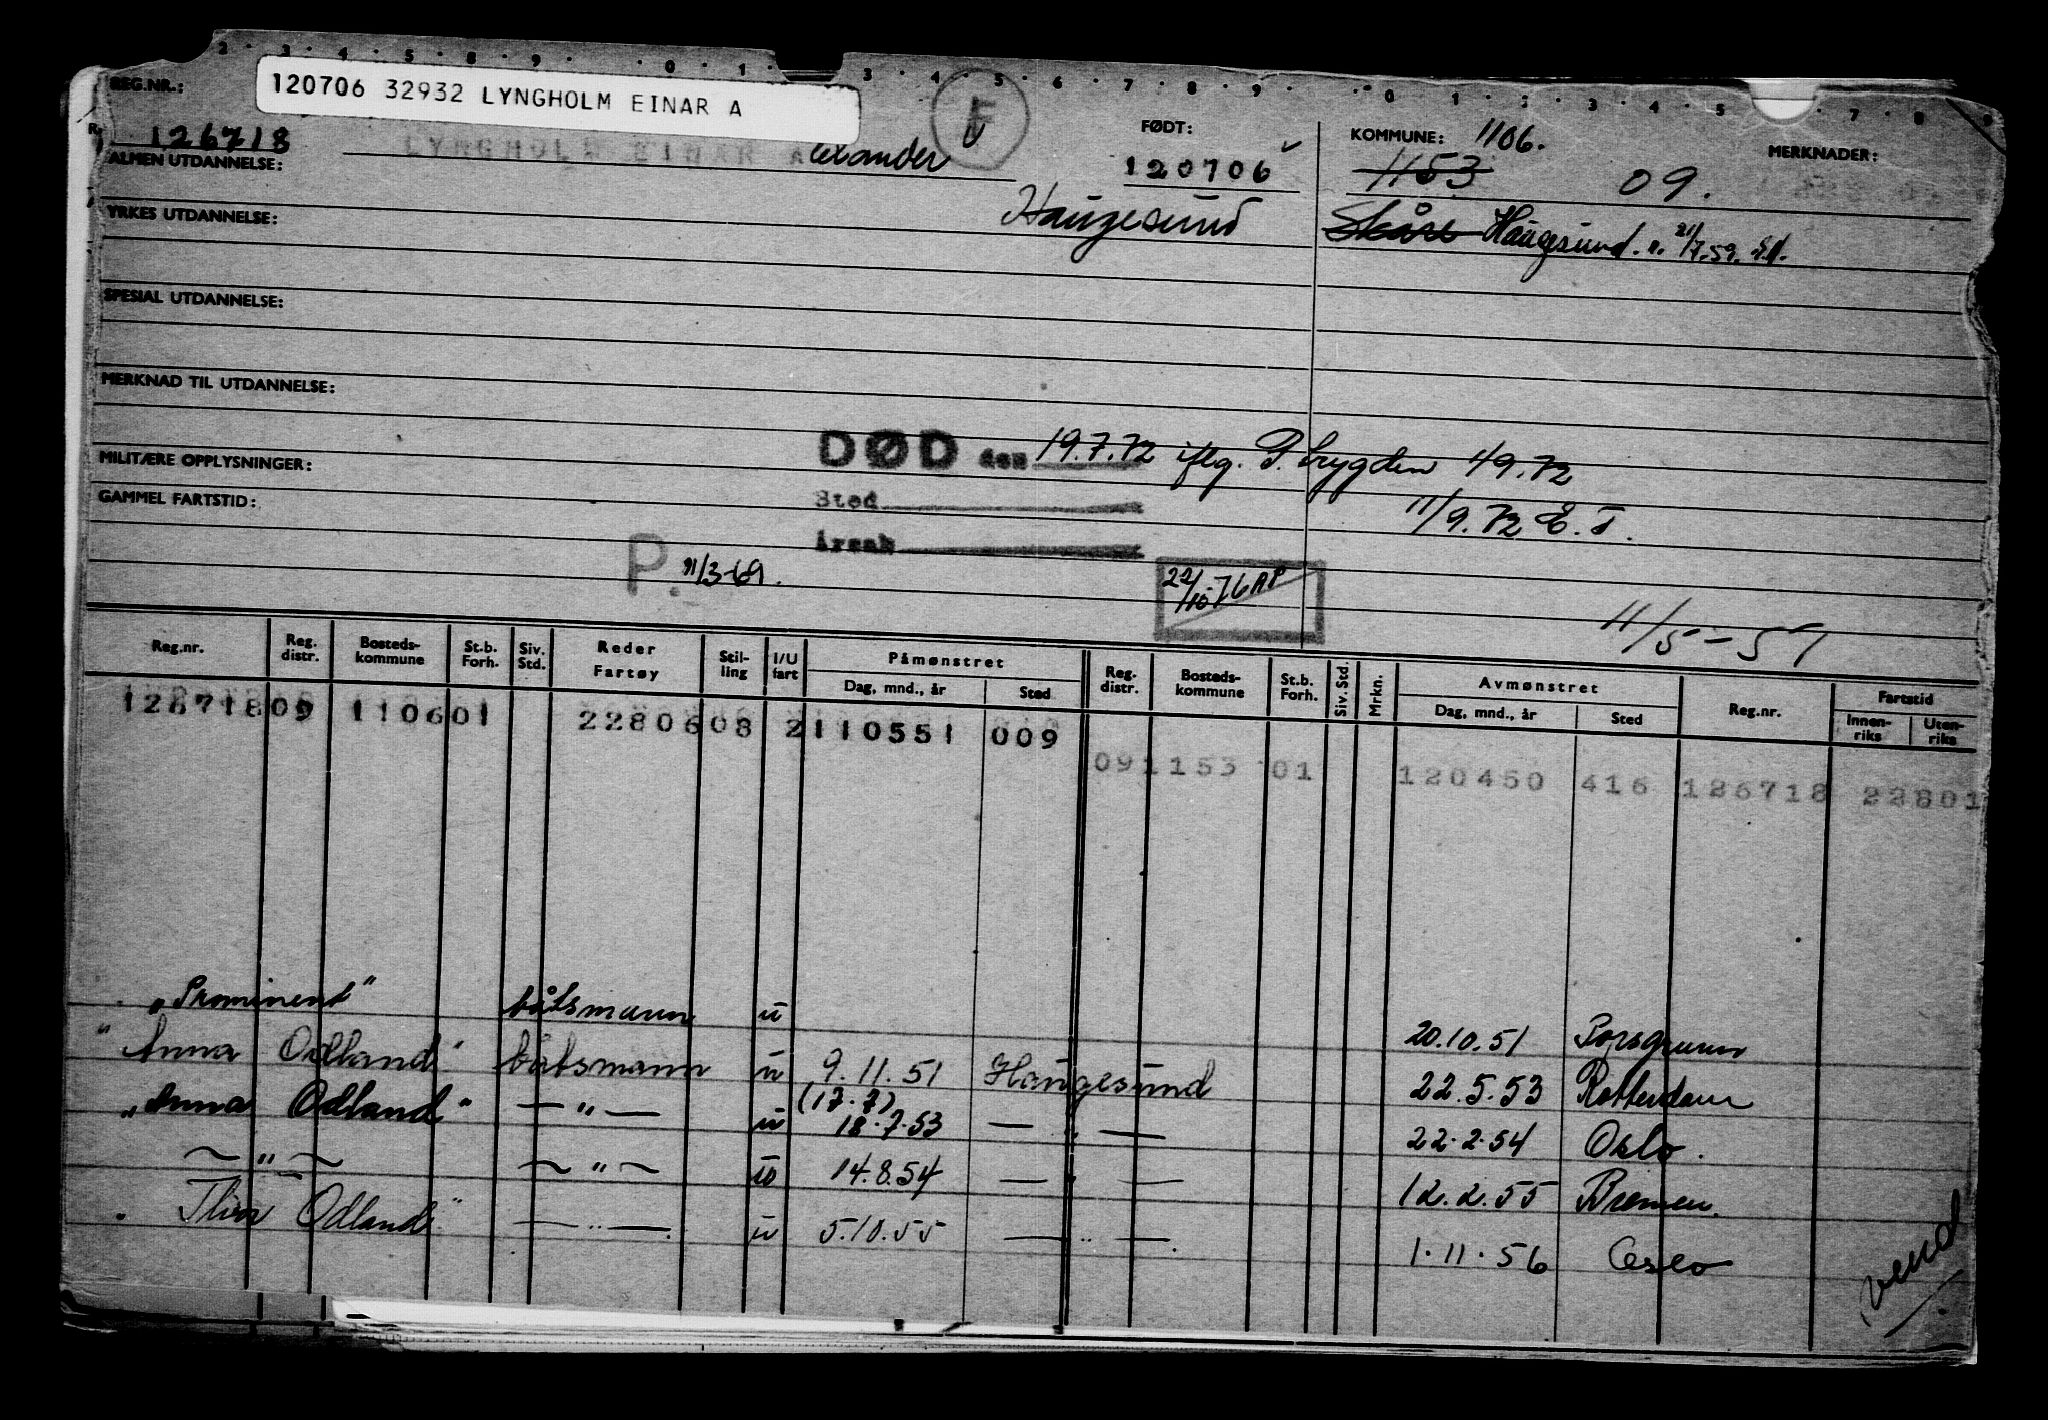 2 · 3 · 4 · 5 · 8 · 9 · 0 · 1 · 3 · 4 · 5 · 6 · 7 · 8 · 9 · 0 · 1 · 2 · 3 · 4 · 5 · 7 · 8 · 9
REG.NR.:
120706 32932 LYNGHOLM EINAR A
F
126718
LYNGHOLM EINAR Alexander
FØDT:
120706
KOMMUNE: 1106.
1153
09.
MERKNADER:
ALMEN UTDANNELSE:
Haugesund
Skåre Haugesund. n. 21/7.59.
YRKES UTDANNELSE:
SPESIAL UTDANNELSE:
MERKNAD TIL UTDANNELSE:
DØD den 19.7.72 iflg. P. trygden 4/9.72
MILITÆRE OPPLYSNINGER:
Sted
11/9.72 E.T.
GAMMEL FARTSTID:
Årsak
P. 11/3-69.
22/10-76 AP
11/5-57
Reg.nr. Reg. distr. Bosteds-kommune St.b. Forh. Siv. Std. Reder Fartøy Stil-ling I/U fart Påmønstret Dag, mnd., år Sted Reg. distr. Bosteds-kommune St.b. Forh. Siv. Std. Mrkn. Avmønstret Dag, mnd., år Sted Reg.nr. Fartstid Innen-riks Uten-riks
126718 09 1106 01 22806 08 2 110551 009
09 1153 01 120450 416 126718 22801
"Prominent" båtsmann u 20.10.51 Porsgrunn
"Anna Odland" båtsmann u 9.11.51 Haugesund 22.5.53 Rotterdam
"Anna Odland" — " — u (17.7) 18.7.53 — " — 22.2.54 Oslo.
— " — — " — u 14.8.54 — " — 12.2.55 Bremen.
"Thor Odland" — " — u 5.10.55 — " — 1.11.56 Oslo
vend